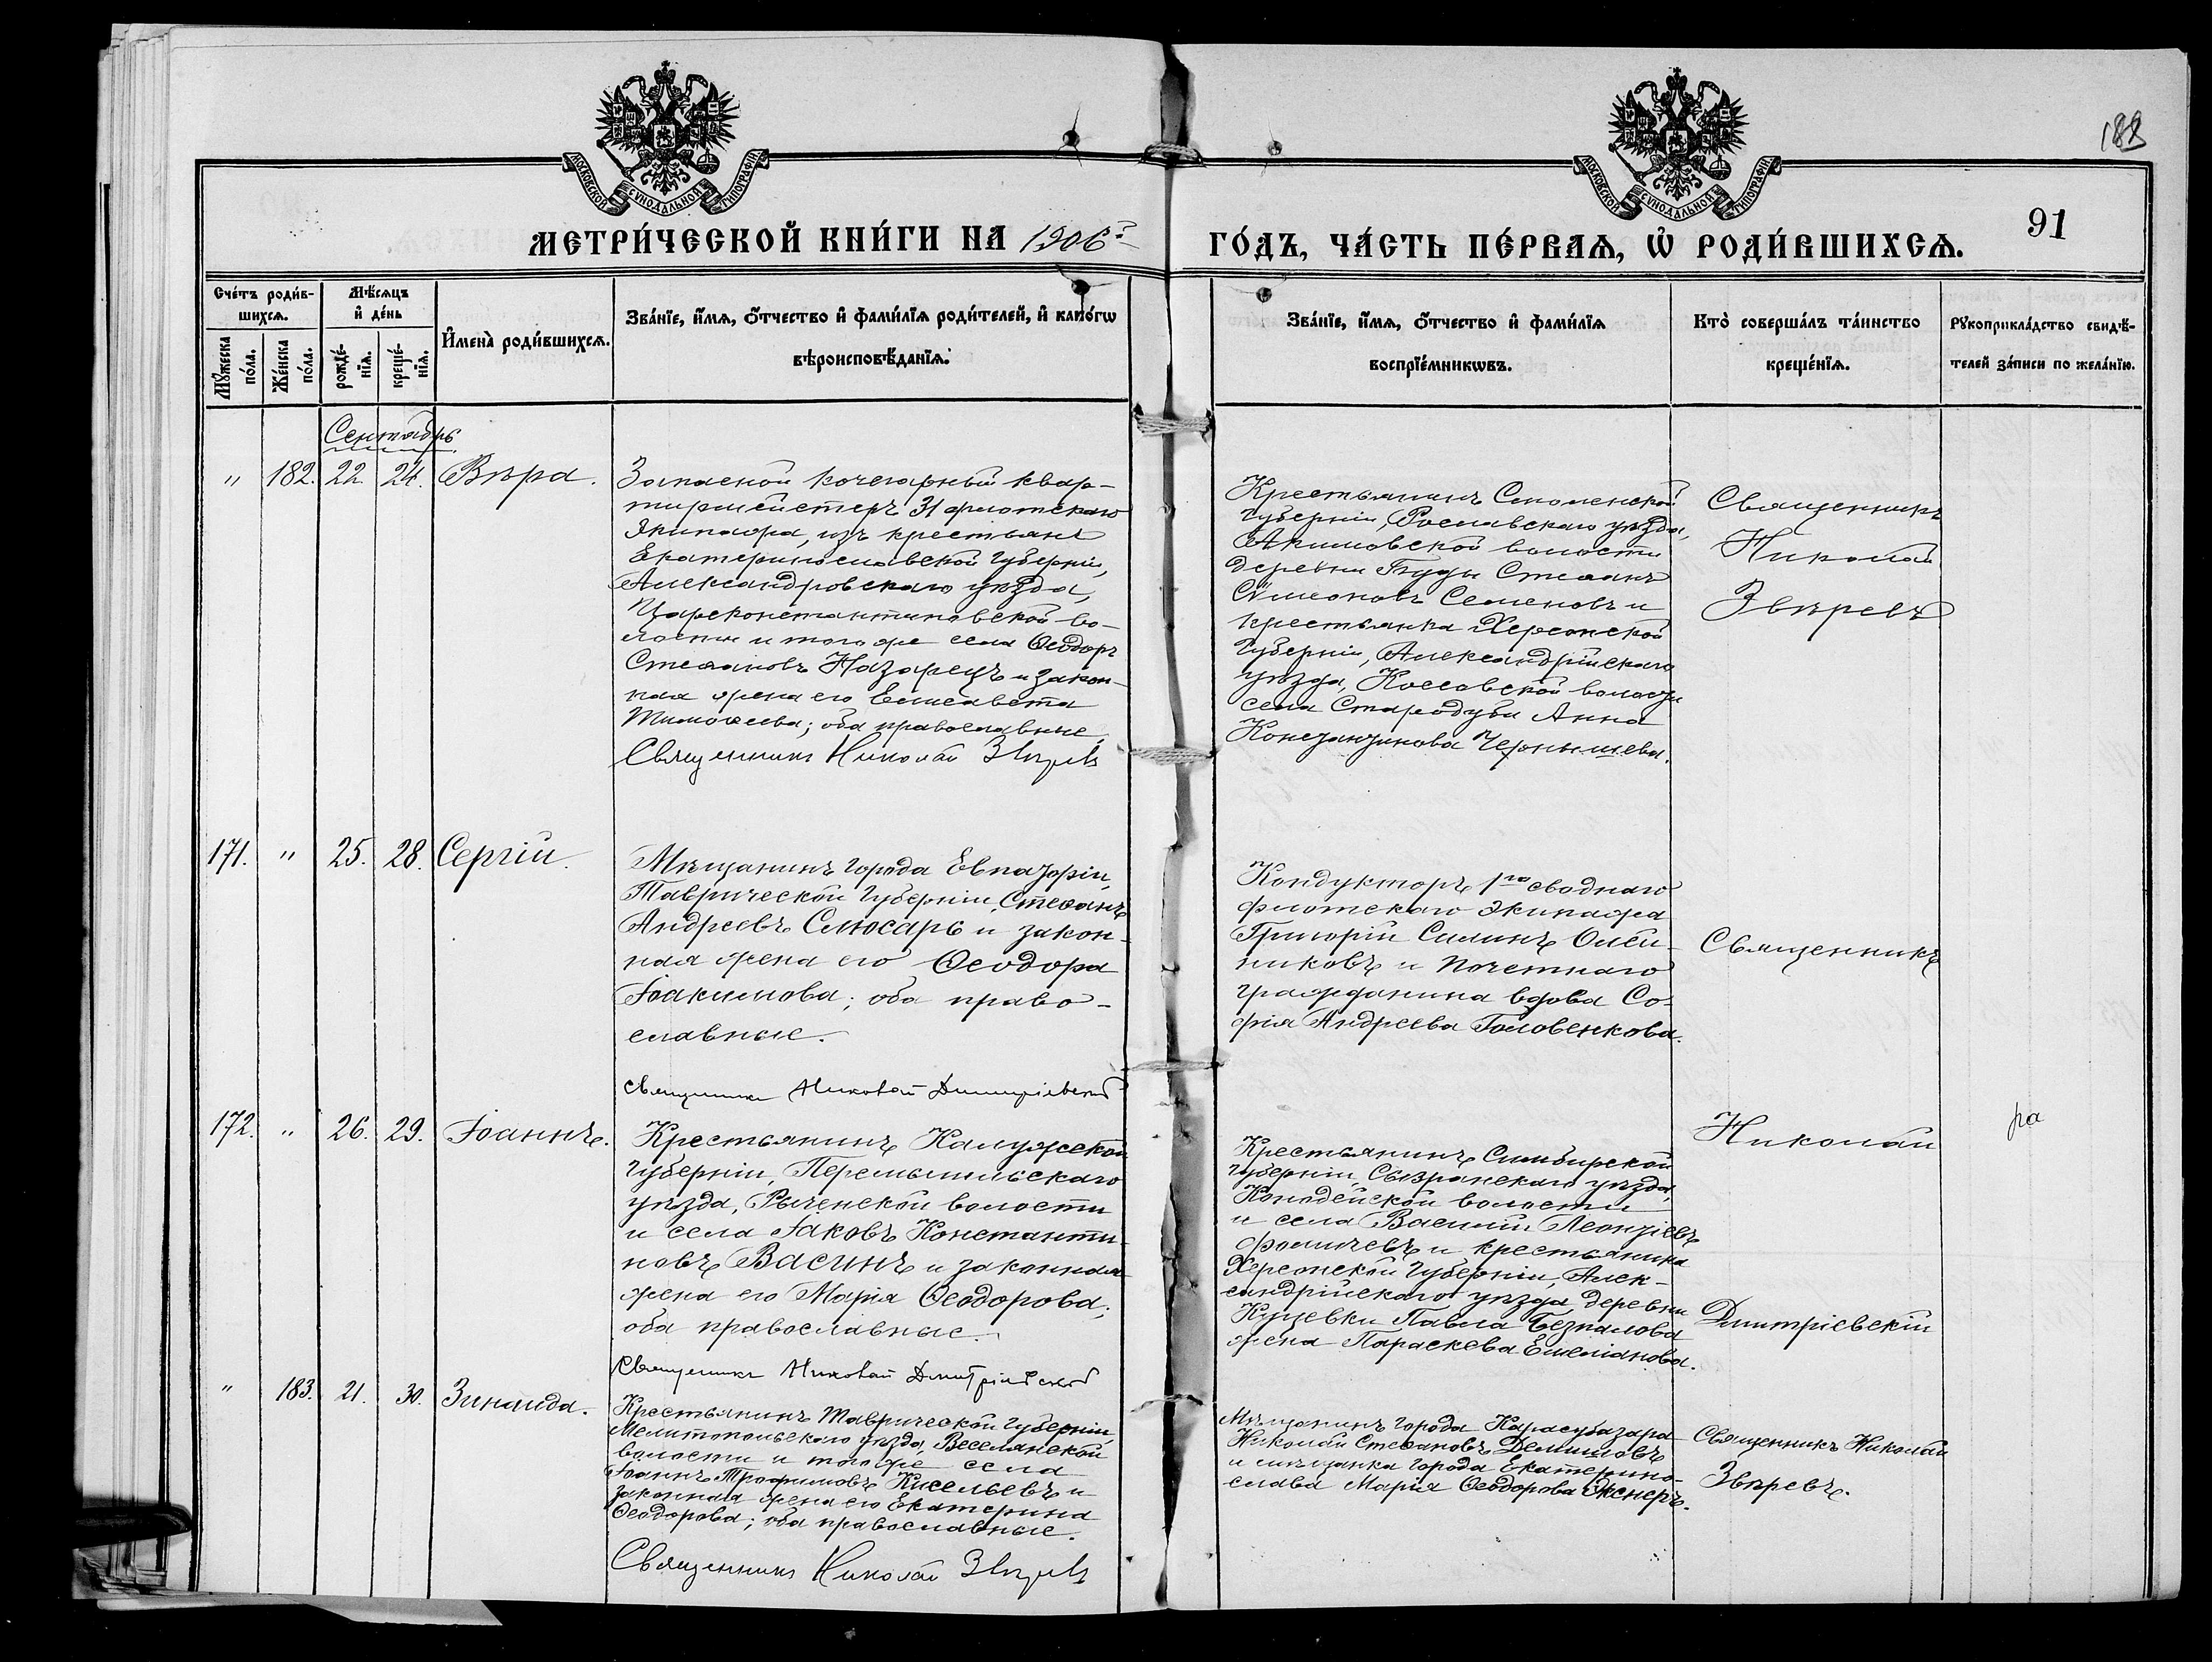 МОСКОВСКОЙ СѴНОДАЛЬНОЙ ТИПОГРАФІИ
МОСКОВСКОЙ СѴНОДАЛЬНОЙ ТИПОГРАФІИ
91
МЕТРИ́ЧЕСКОЙ КНИ́ГИ НА 1906й
ГО́ДЪ, ЧА́СТЬ ПЕ́РВАѦ, Ѡ҆ РОДИ́ВШИХСѦ.
Сче́тъ роди́в-
шихсѧ.
Мꙋ́жеска по́ла.
Же́нска по́ла.
Мѣ́сѧцъ
и҆ де́нь
рожде́-
нїѧ.
креще́-
нїѧ.
И҆мена̀ роди́вшихсѧ.
Зва́нїе, и҆́мѧ, ѻ҆́тчество и҆ фами́лїѧ роди́телей, и҆ како́гѡ
вѣроисповѣ́данїѧ.
Зва́нїе, и҆́мѧ, ѻ҆́тчество и҆ фами́лїѧ
воспрїе́мникѡвъ.
Кто̀ соверша́лъ та́инство
креще́нїѧ.
Рꙋкоприкла́дство свидѣ́-
телей за́писи по жела́нїю.
Сентябрь.
" 182. 22. 24. Вѣра.
Запасной кочегарный квар-
тирмейстеръ 31 флотскаго
Экипажа, изъ крестьянъ
Екатеринославской губерніи,
Александровскаго уѣзда,
Цареконстантиновской во-
лости и того же села Ѳеодоръ
Стефановъ Назарецъ и закон-
ная жена его Елисавета
Тимоѳеева; оба православные.
Священникъ Николай Звѣревъ
Крестьянинъ Смоленской
губерніи, Рославскаго уѣзда,
Акимовской волости
деревни Буды Стефанъ
Сѵмеоновъ Семеновъ и
крестьянка Херсонской
губерніи, Александрійскаго
уѣзда, Косовской волости
села Стародуба Анна
Константинова Чернышева.
Священникъ
Николай
Звѣревъ
171. " 25. 28. Сергій.
Мѣщанинъ города Евпаторіи,
Таврической губерніи, Стефанъ
Андреевъ Слюсарь и закон-
ная жена его Ѳеодора
Іоакимова; оба право-
славные.
Священникъ Николай Димитріевскій
Кондукторъ 1го своднаго
флотскаго экипажа
Григорій Силинъ Олей-
никовъ и почетнаго
гражданина вдова Со-
фія Андреева Головенкова.
Священникъ
172. " 26. 29. Іоаннъ.
Крестьянинъ Калужской
губерніи, Перемышльскаго
уѣзда, Рыченской волости
и села Іаковъ Константи-
новъ Васинъ и законная
жена его Марія Ѳеодорова;
оба православные.
Священникъ Николай Дмитріевскій
Крестьянинъ Симбирской
губерніи, Сызранскаго уѣзда,
Канадейской волости
и села Василій Леонтіевъ
Фомичевъ и крестьянина
Херсонской губерніи, Алек-
сандрійскаго уѣзда, деревни
Куцевки Павла Безпалова
жена Параскева Емеліанова.
Николай
Дмитріевскій
" 183. 21. 30. Зинаида.
Крестьянинъ Таврической губерніи,
Мелитопольскаго уѣзда, Веселянской
волости и того же села
Іоаннъ Трофимовъ Киселевъ и
законная жена его Екатерина
Ѳеодорова; оба православные.
Священникъ Николай Звѣревъ
Мѣщанинъ города Карасубазара
Николай Стефановъ Демишовъ
и мѣщанка города Екатерино-
слава Марія Ѳеодорова Экснеръ.
Священникъ Николай
Звѣревъ.